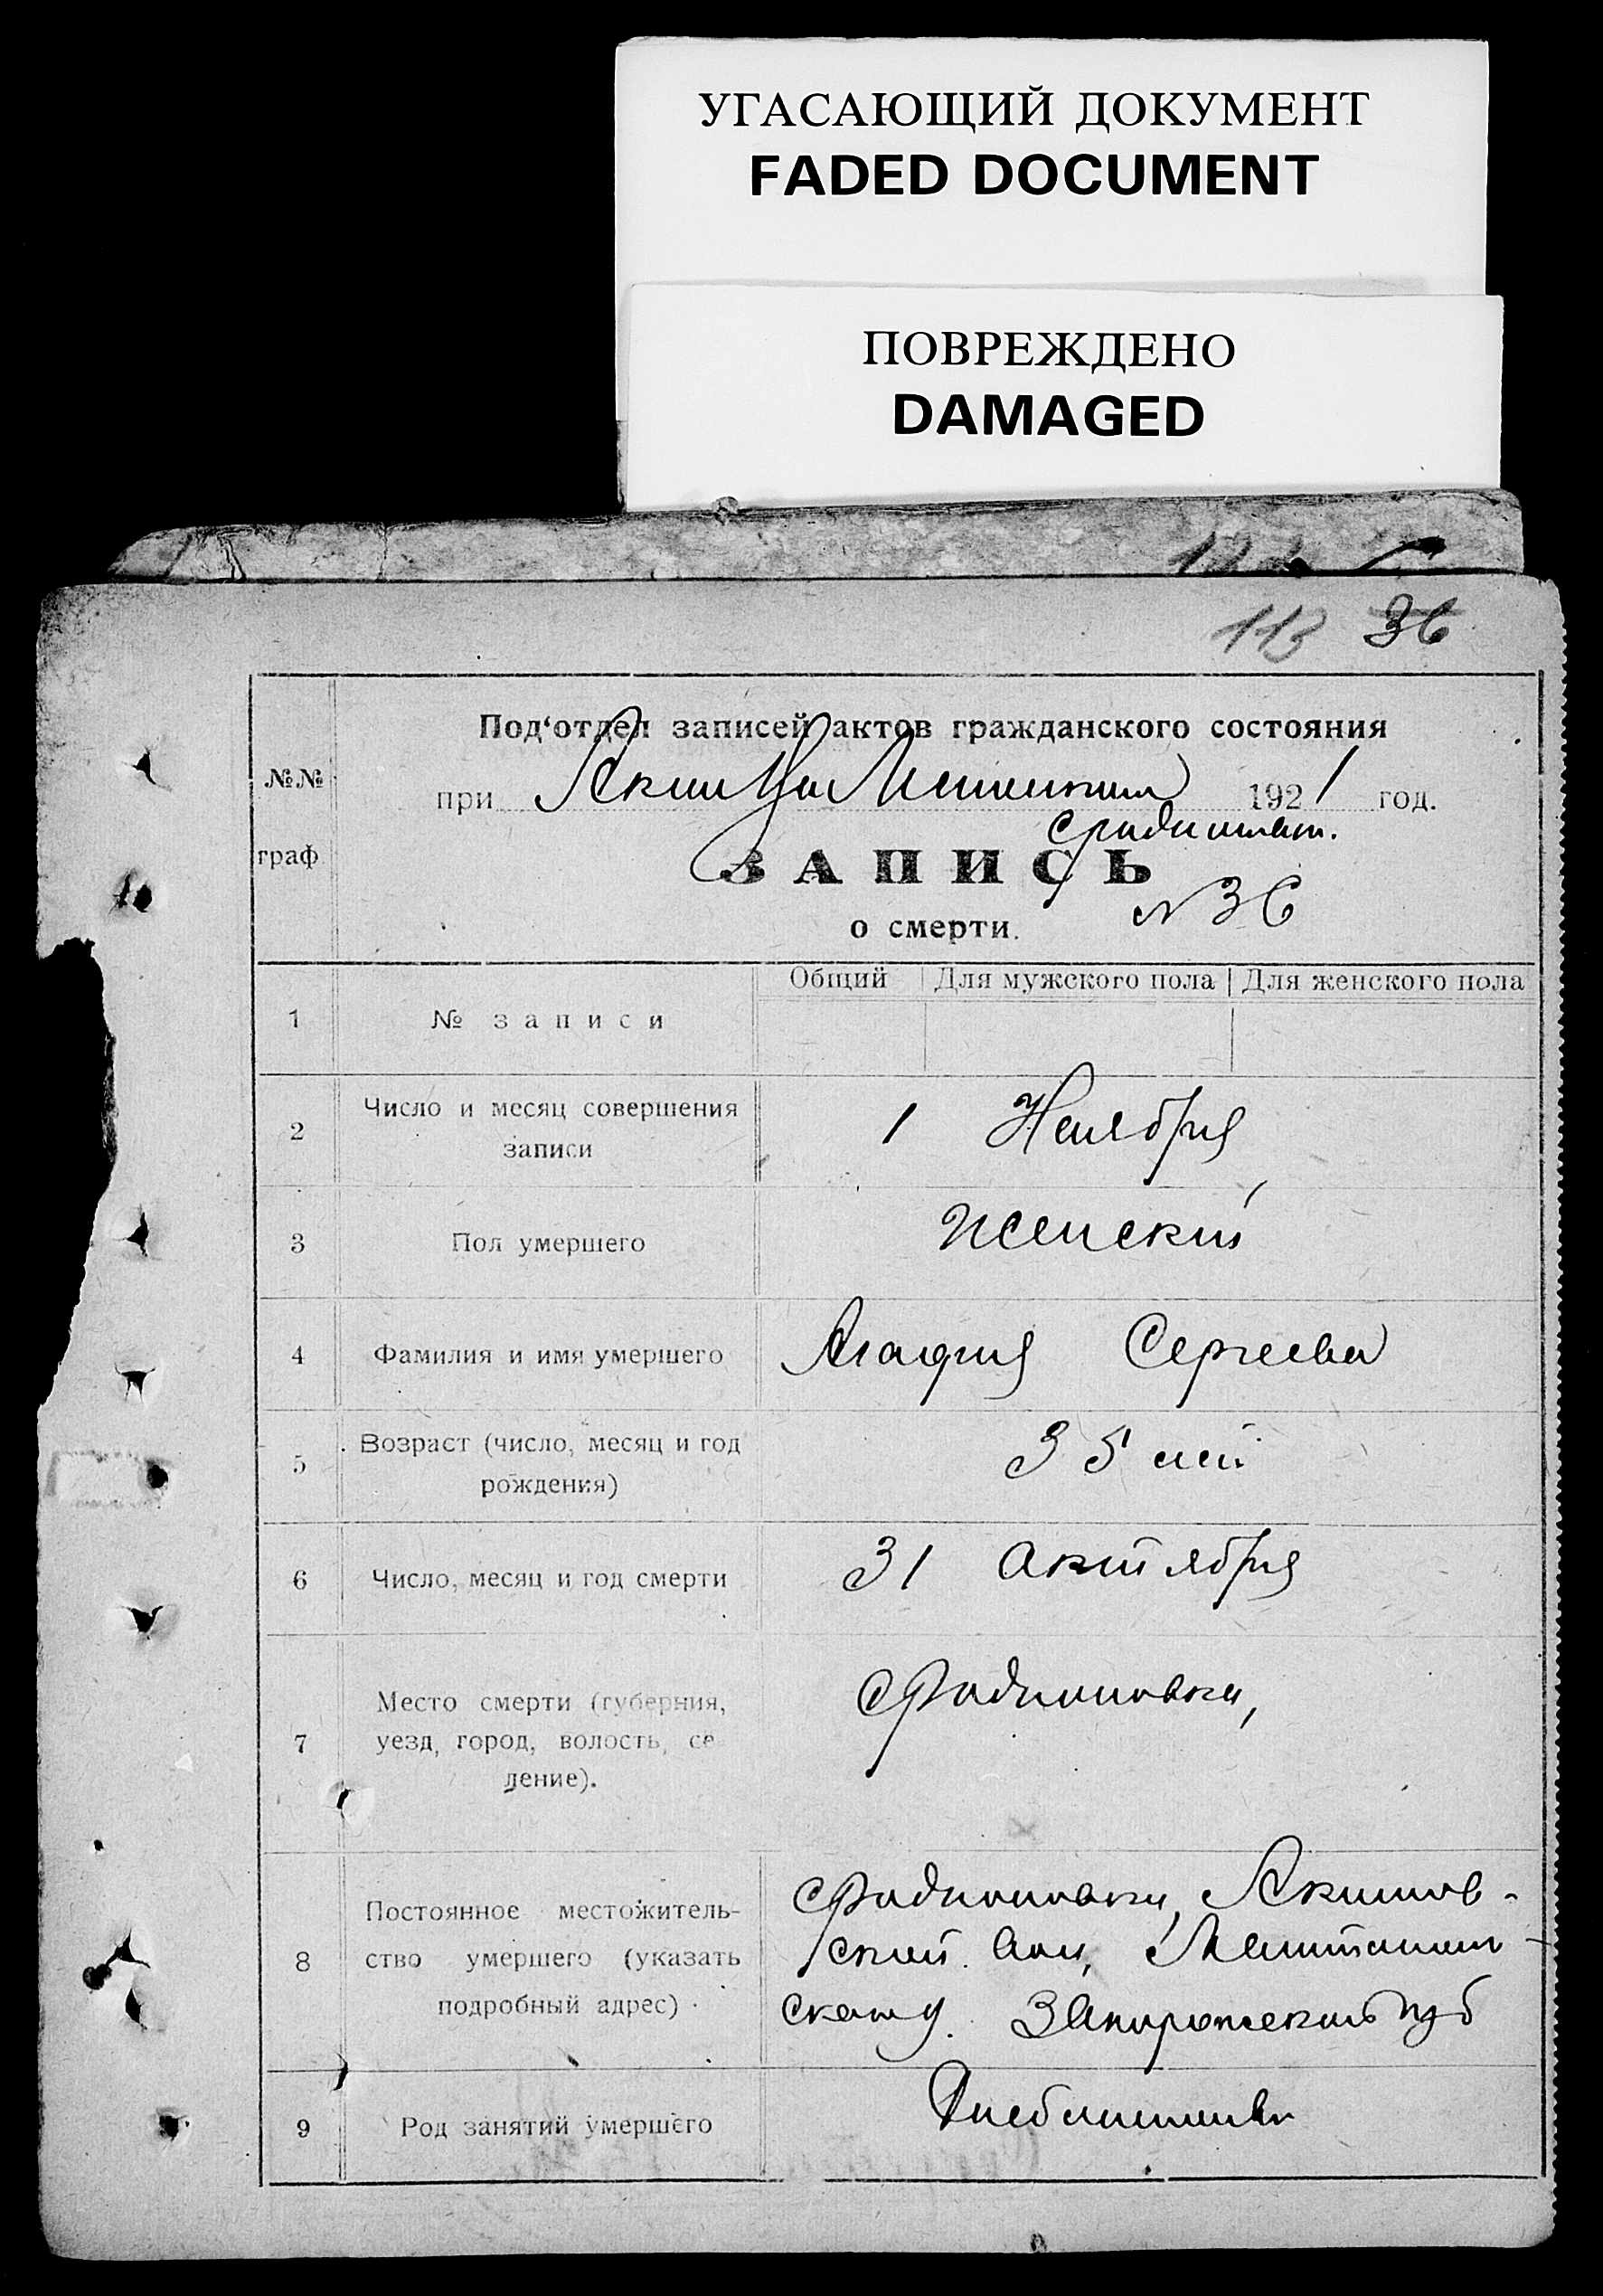 УГАСАЮЩИЙ ДОКУМЕНТ
FADED DOCUMENT
ПОВРЕЖДЕНО
DAMAGED
113 36
Под‘отдел записей актов гражданского состояния
№№ граф
при 1921 год.
ЗАПИСЬ
о смерти. N 36
Общий Для мужского пола Для женского пола
1 № записи
2 Число и месяц совершения
записи
1 Ноября
3 Пол умершего Женский
4 Фамилия и имя умершего Агафия Сергеева
5 Возраст (число, месяц и год
рождения)
35 лет
6 Число, месяц и год смерти 31 Октября
7 Место смерти (губерния,
уезд, город, волость, се
ление).
с Радионовка,
8 Постоянное местожитель-
ство умершего (указать
подробный адрес)
с Радионовка, Акимов-
ской вол,
ского у. Запорожской губ
9 Род занятий умершего Хлебопашка